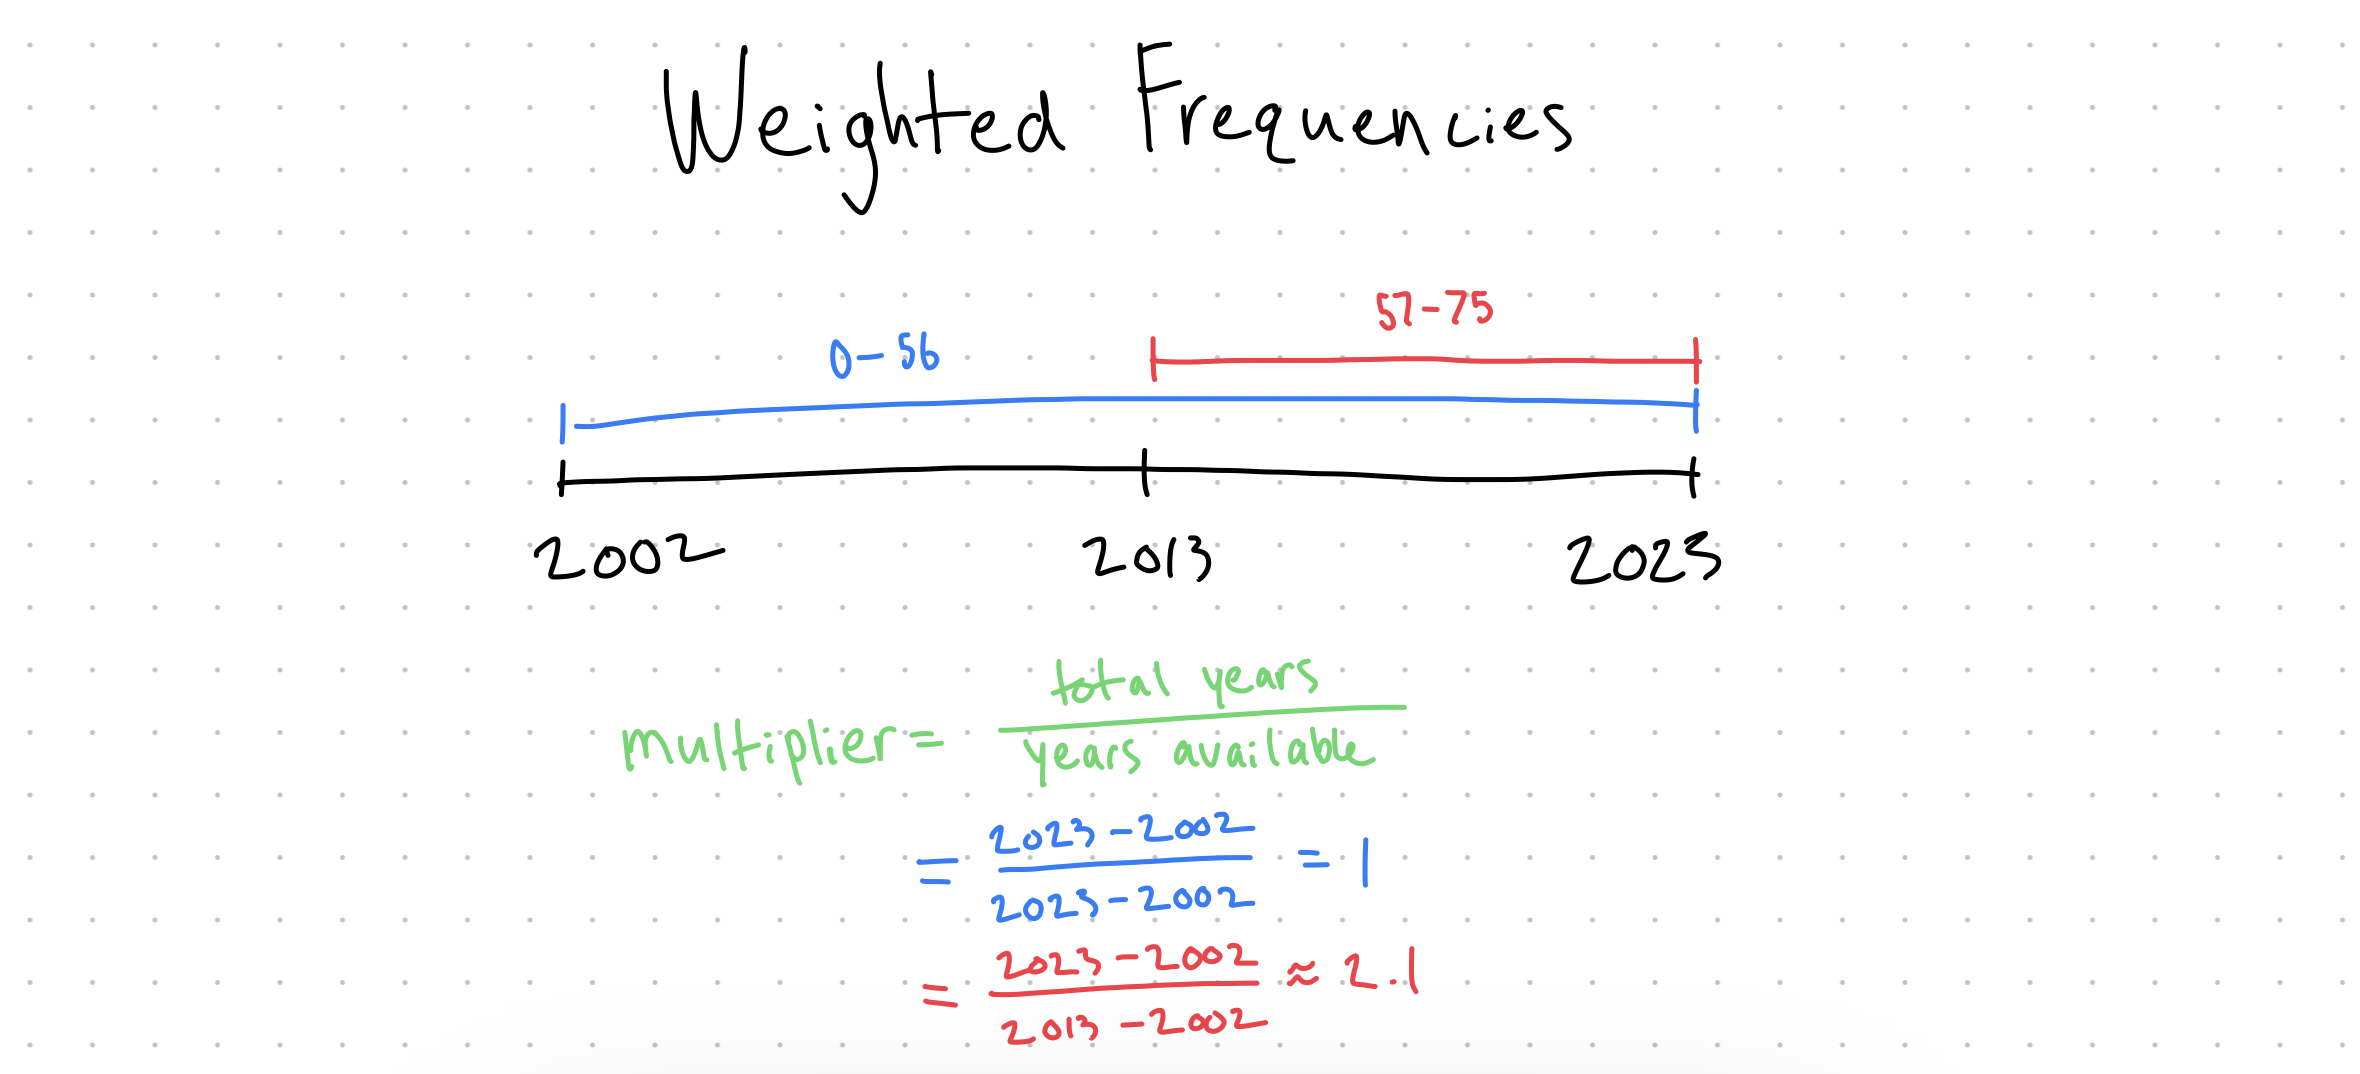 Weighted Frequencies
57-75
0-56
2002 2013 2023
multiplier = total years / years available
= 2023-2002 / 2023-2002 = 1
= 2023-2002 / 2013-2002 ≈ 2.1